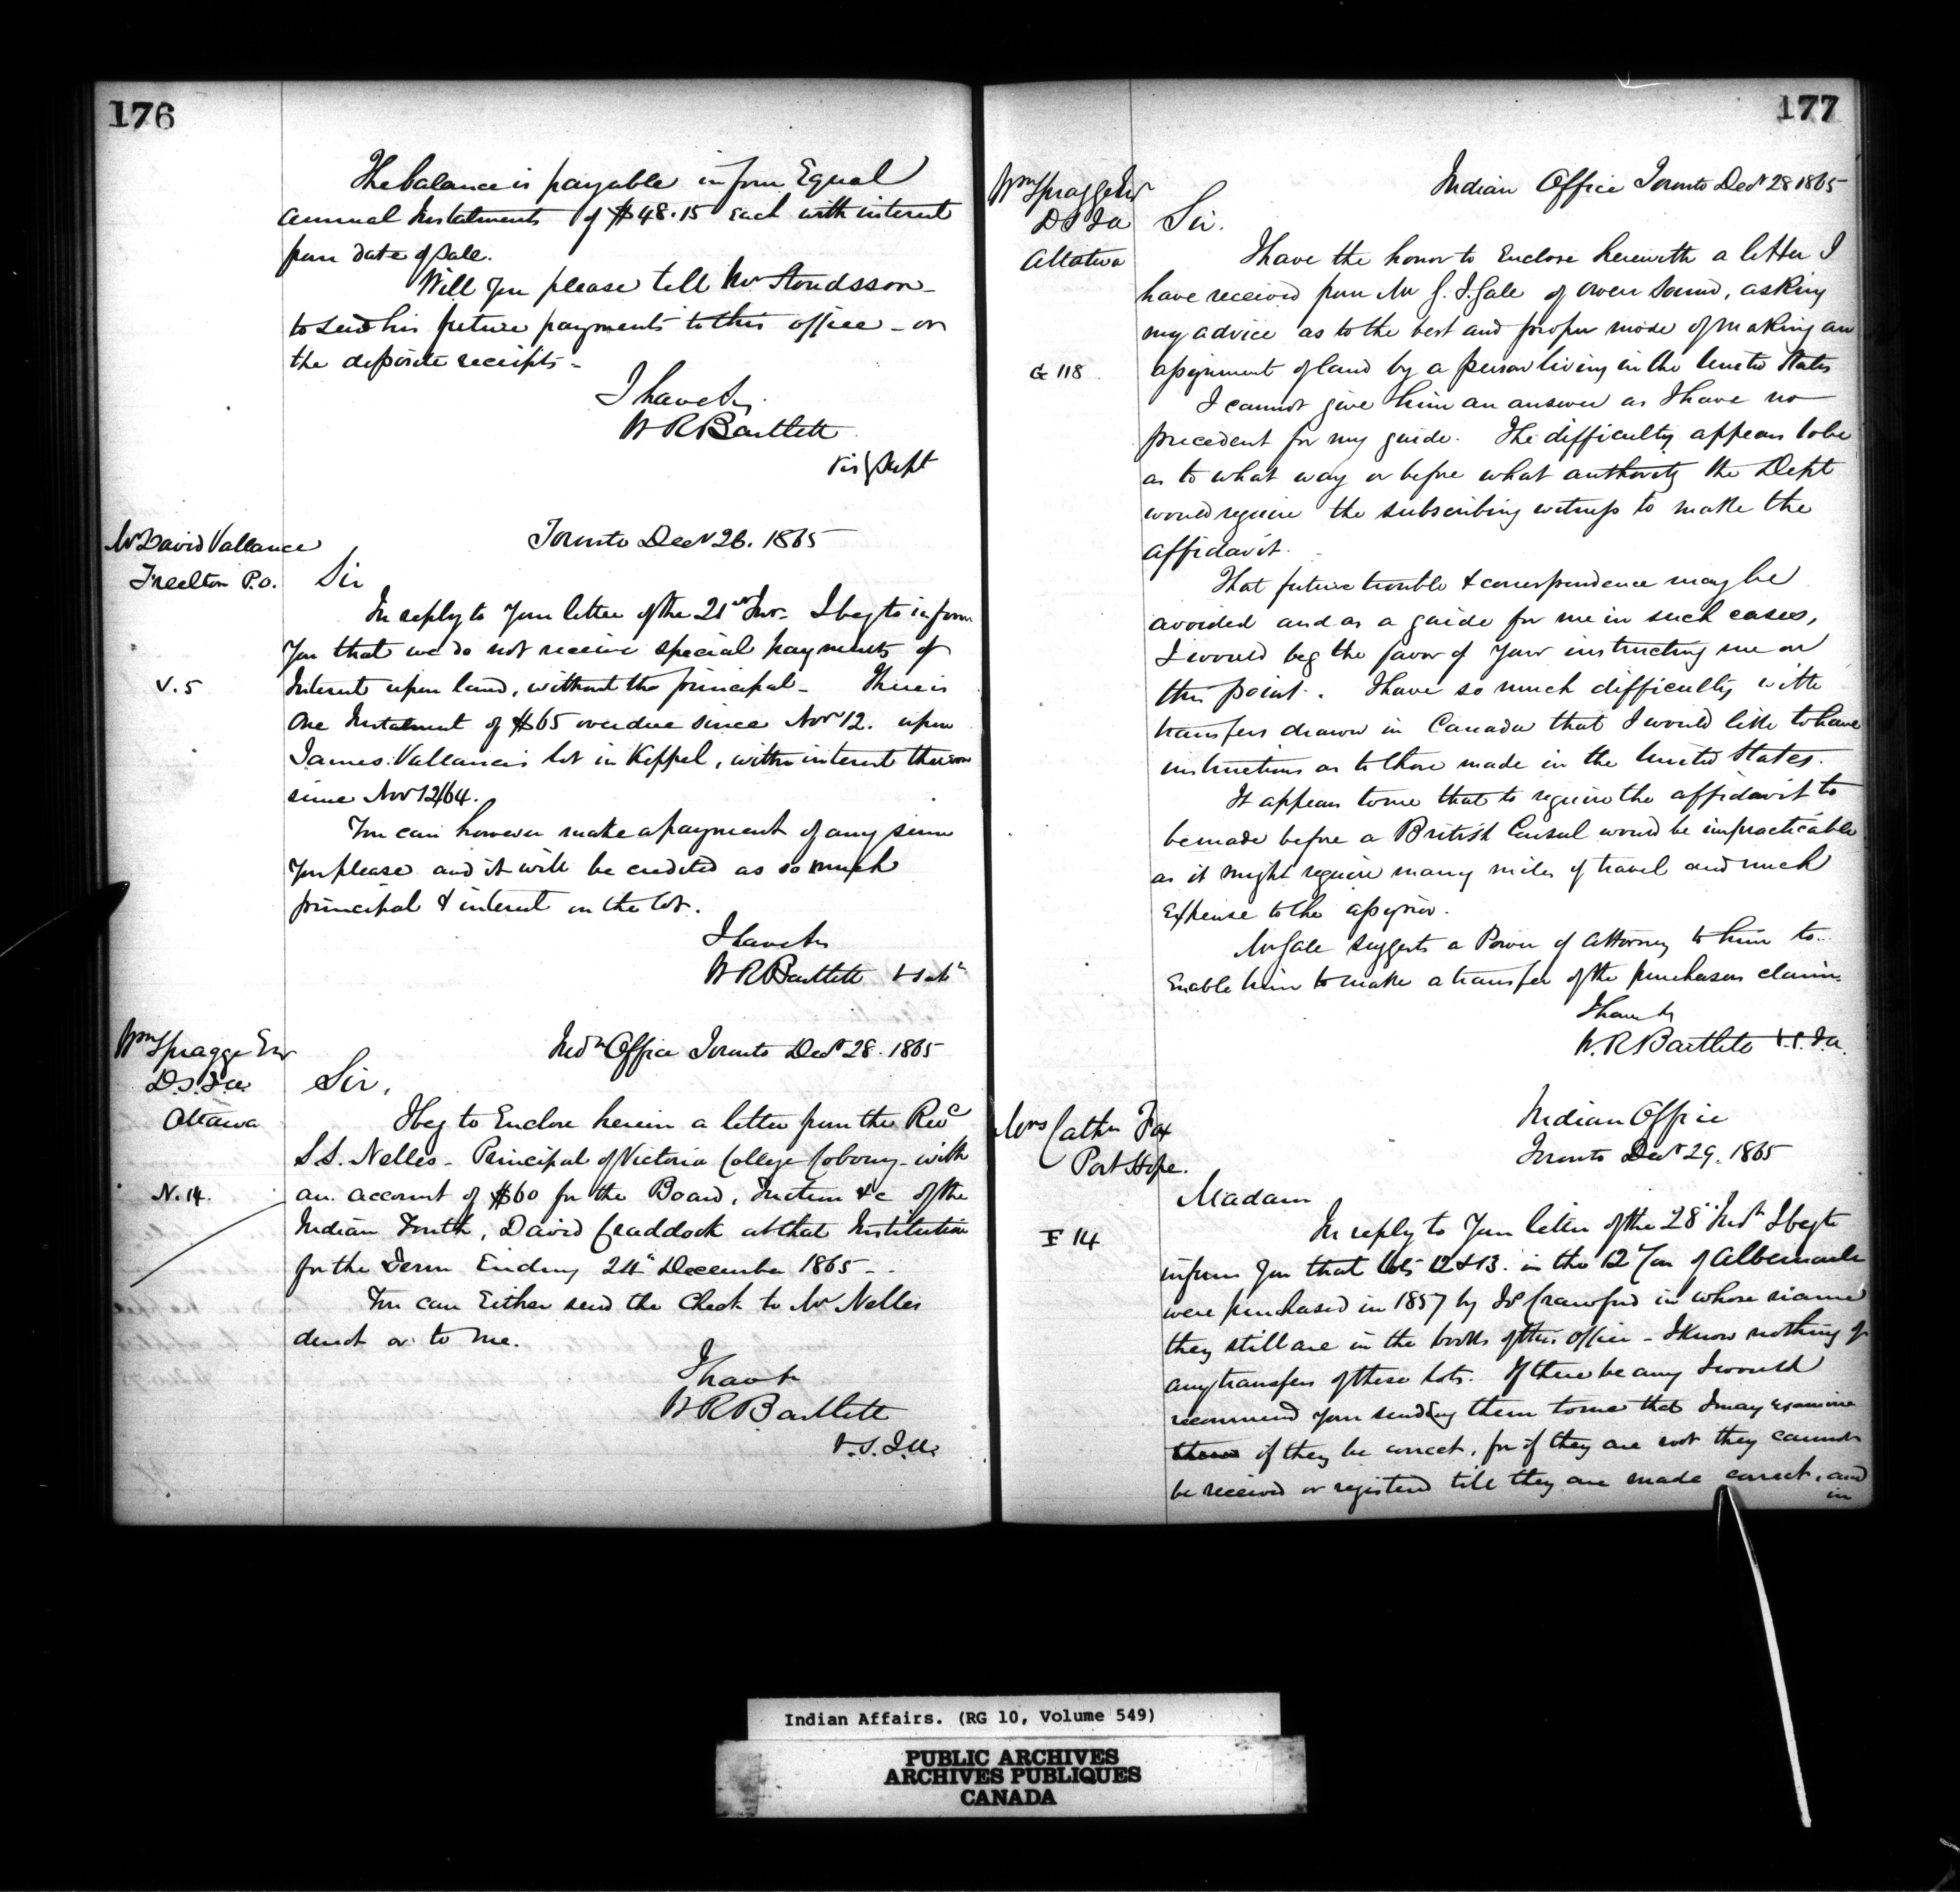 176
The balance is payable in four Equal
annual Instalments of $48.15 each with interest
from date of sale.
Will you please tell Mr
to send his future payments to this office - or
the deposite receipts -
I have &c
W R Bartlett
Vis g Supt
Mr David Vallance
Freelton P.O.
V. 5
Toronto Decr 26. 1865
Sir
In reply to your letter of the 21st Inst. I beg to inform
you that we do not receive special payments of
Interest upon land, without the principal - There is
One Instalment of $65 overdue since Novr 12. upon
James Vallance's lot in Keppel, with interest thereon
since Nov 12/64.
You can however make a payment of any sum
you please and it will be credited as so much
principal & interest on the lot.
I have &c
W R Bartlett
Wm Spragge Esqr
D.S.I.A.
Ottawa
N. 14.
Indn Office Toronto Decr 28. 1865
Sir,
I beg to Enclose herein a letter from the Revd
S S. Nelles - Principal of Victoria College Cobourg - with
an account of $60 for the Board, Tuition &c of the
Indian Youth, David Craddock at that Institution
for the Term Ending 24th December 1865 -
You can Either send the Check to Mr Nelles
direct or to me.
I have &c
W R Bartlett
V.S.I.A.
177
Wm Spragge Esqr
D S I A
Ottawa
G 118
Indian Office Toronto Decr 28 1865
Sir.
I have the honor to Enclose herewith a letter I
have received from Mr G. J. Gale of Owen Sound, asking
my advice as to the best and proper mode of making an
assignment of land by a person living in the United States
I cannot give him an answer as I have no
precedent for my guide. The difficulty appears to be
as to what way or before what authority the Dept
would require the subscribing witness to make the
affidavit.
That future trouble & correspondence may be
avoided and as a guide for me in such cases,
I would beg the favor of your instructing me on
this point. I have so much difficulty with
transfers drawn in Canada that I would like to have
instructions as to those made in the United States.
It appears to me that to require the affidavit to
be made before a British Consul would be impracticable
as it might require many miles of travel and much
Expense to the assignor.
Mr Gale suggests a Power of Attorney to him to
Enable him to make a transfer of the purchasers claim.
I have &c
W. R Bartlett V.S.I.A.
Mrs Cathn Fox
Port Hope.
F 14
Indian Office
Toronto Decr 29. 1865
Madam
In reply to your letter of the 28th Inst I beg to
inform you that lots 12 & 13. in the 12 Con of Albemarle
were purchased in 1857 by Crawford in whose name
they still are in the books of this office - I know nothing of
any transfers of these lots. If there be any I would
recommend your sending them to me that I may examine
them if they be correct, for if they are not they cannot
be received or registered till they are made correct, and
in
Indian Affairs. (RG 10, Volume 549)
PUBLIC ARCHIVES
ARCHIVES PUBLIQUES
CANADA